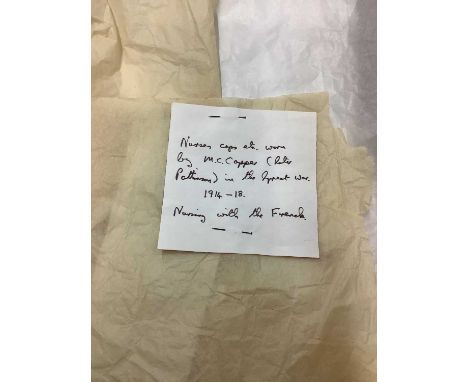 Nurses caps etc. worn
by M.C. Capper (later
Pattinson) in the Great War.
1914-18.
Nursing with the French